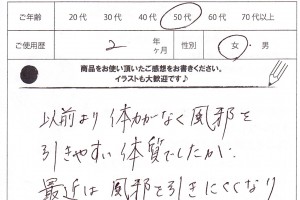 ご年齢 20代 30代 40代 50代 60代 70代以上
ご使用歴 2 年 ヶ月 性別 女・男
商品をお使い頂いたご感想をお書きください。
イラストも大歓迎です♪
以前より体力がなく風邪を
引きやすい体質でしたが、
最近は風邪を引きにくくなり